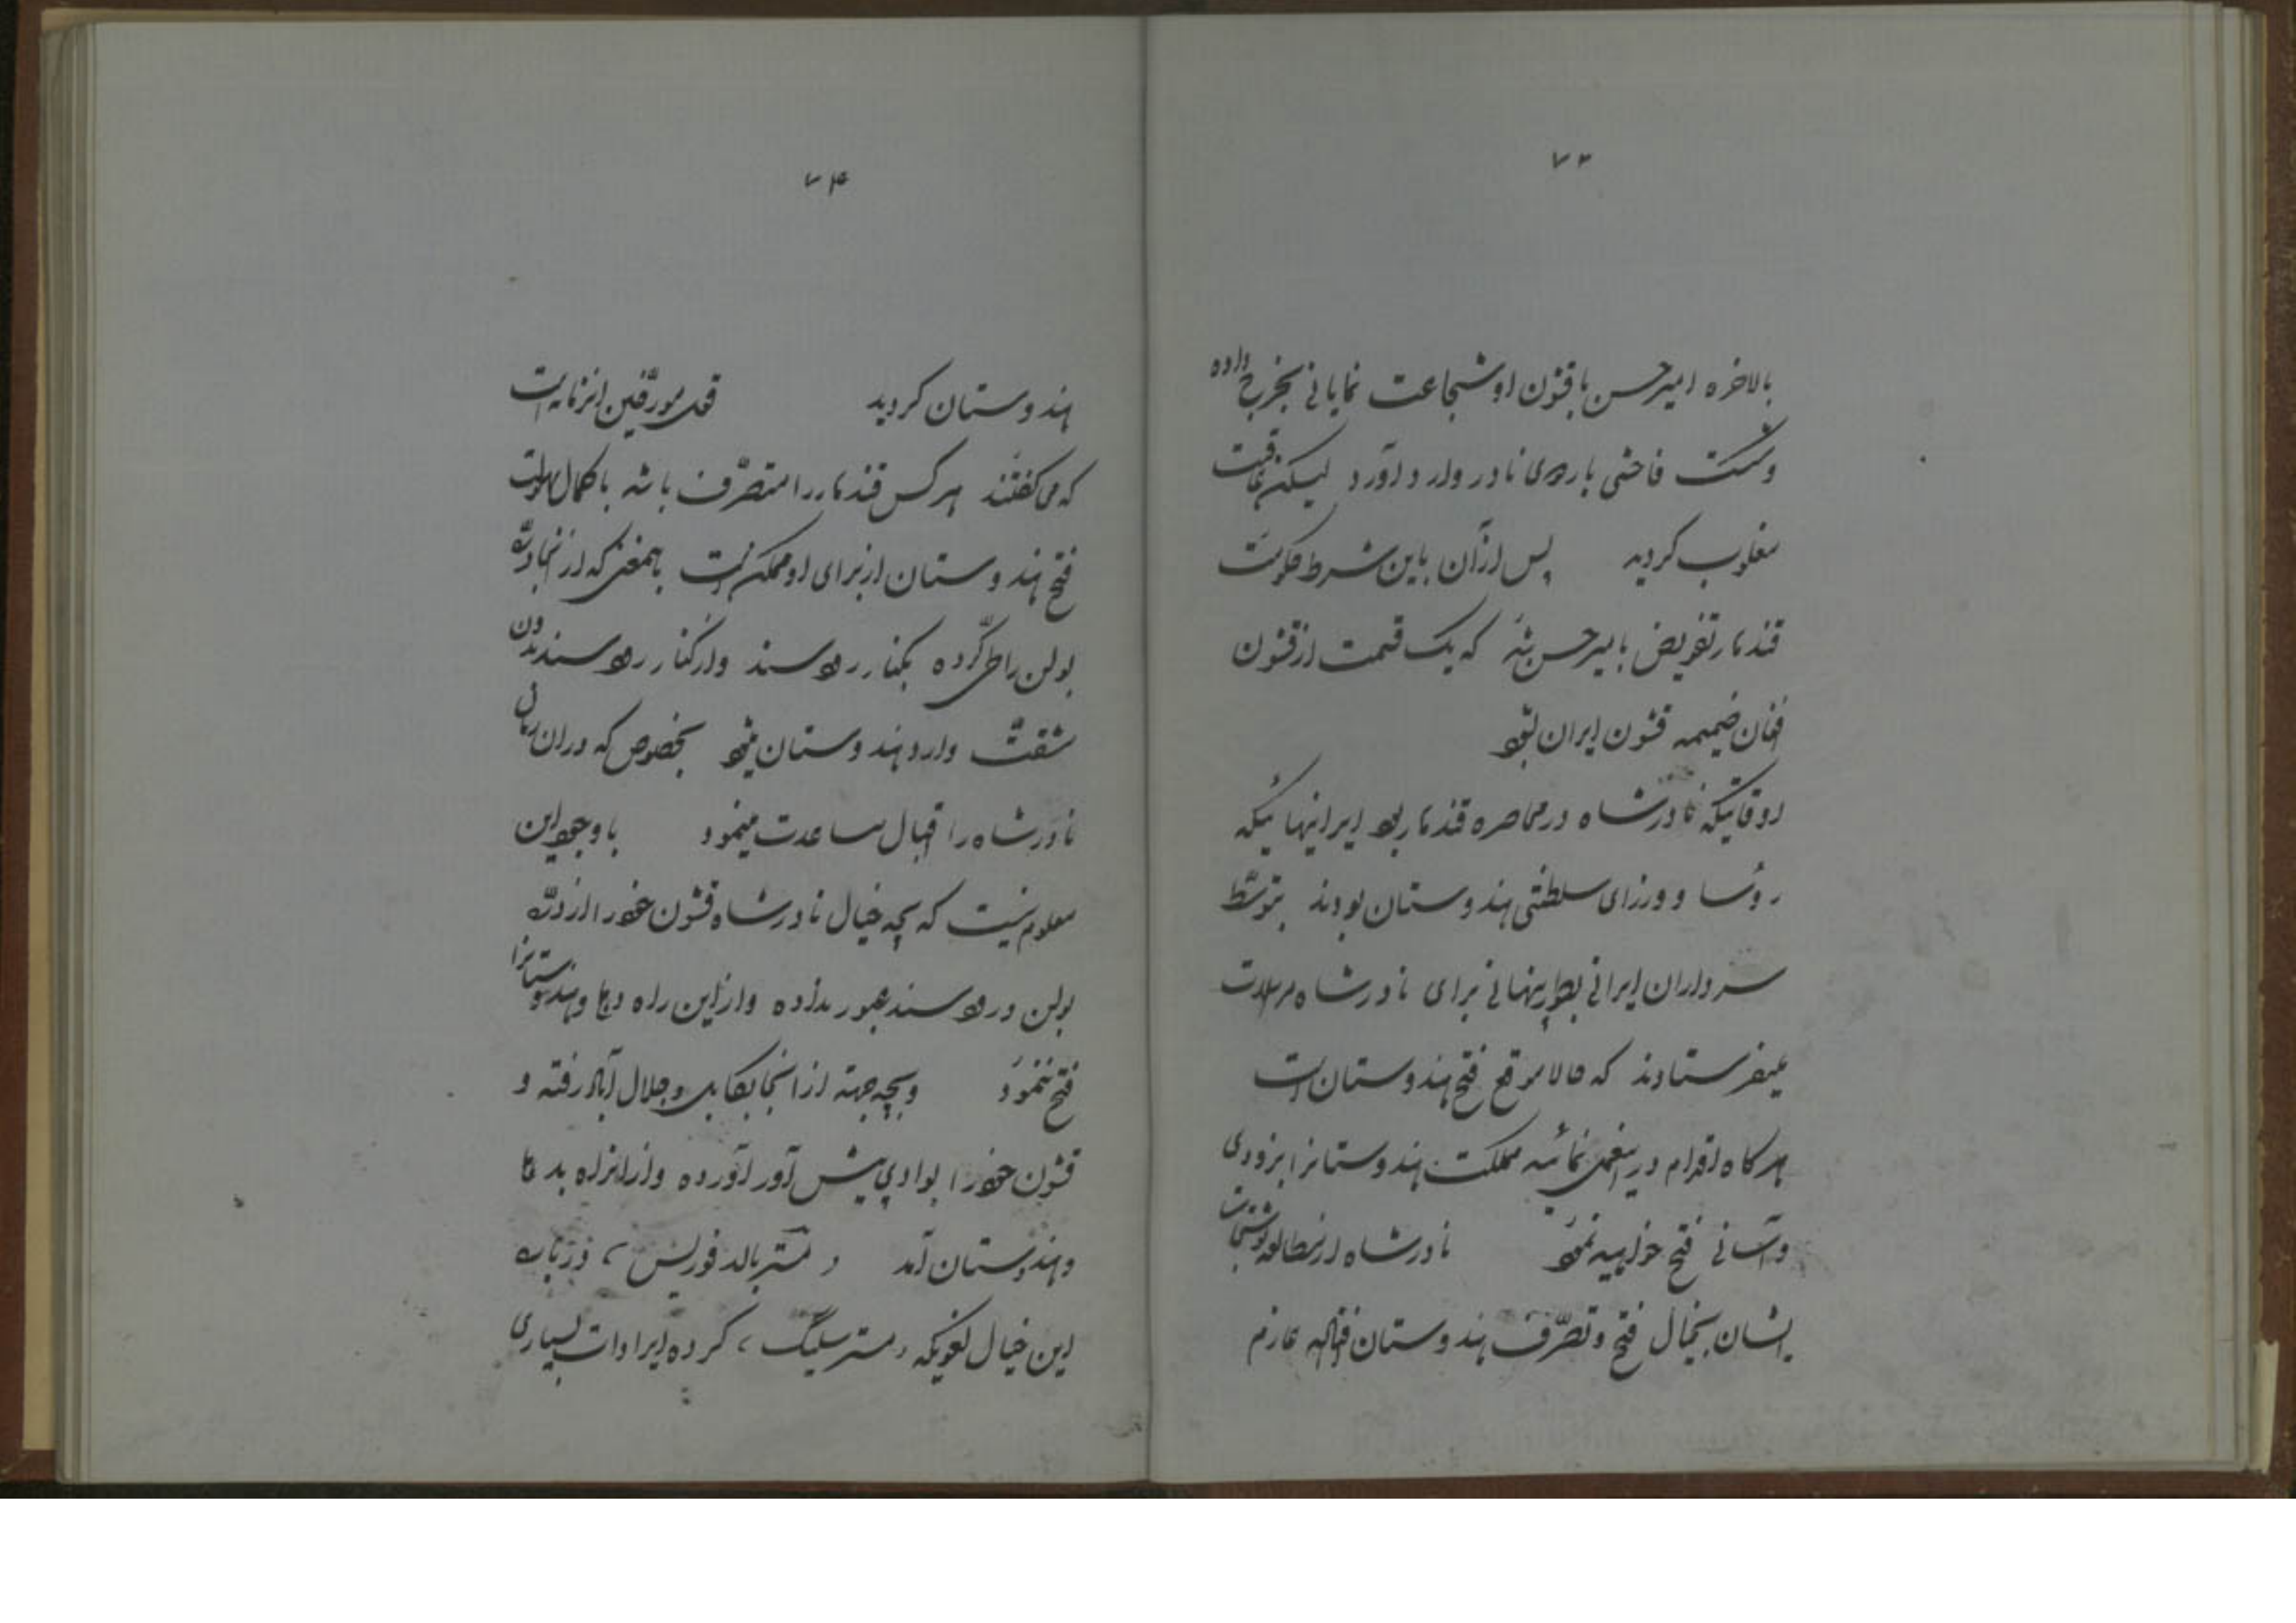 ۷۳
بالاخره امیرحسن باقشون او شجاعت نمایانی بخرج داده
وشکست فاحشی باردوی نادر وارد آورد لیکن عاقبت
مغلوب کردید پس ازآن باین شرط حکومت
قندهار تفویض بامیرحسن شد که یک قسمت ازقشون
افغان ضمیمه قشون ایران بشود
اوقاتیکه نادرشاه درمحاصره قندهار بود ایرانیهائیکه
رؤسا و وزرای سلطنتی هندوستان بودند بتوسّط
سرداران ایرانی بطور پنهانی برای نادرشاه مراسلات
میفرستادند که حالا موقع فتح هندوستان است
هرکاه اقدام دراینعمل نمائید مملکت هندوستانرا بزودی
وآسانی فتح خواهید نمود نادرشاه ازمطالعه نوشتجات
ایشان بخیال فتح وتصرّف هندوستان افتاده عازم
۷۴
هندوستان کردید قول مورّخین انزمان است
که می کفتند هرکس قندهار را متصرّف باشد باکمال سهولت
فتح هندوستان ازبرای او ممکن است باینمعنی که ازانجا درّه
بولن راطی کرده بکنار رود سند وازکنار رود سند بدون
مشقّت وارد هندوستان میشود بخصوص که دران زمان
نادرشاه را اقبال مساعدت مینمود باوجود این
معلوم نیست که بچه خیال نادرشاه قشون خود را ازدرّه
بولن ورود سند عبور نداده وازاین راه دهلی وهندوستانرا
فتح ننمود وبچه جهته ازانجا بکابل وجلال آباد رفته و
قشون خود را بوادی پیش آور آورده وازانراه بدهلی
وهندوستان آمد «مستر بالد فوریس» درباره
این خیال لغویکه «مستر سلیک» کرده ایرادات بسیاری